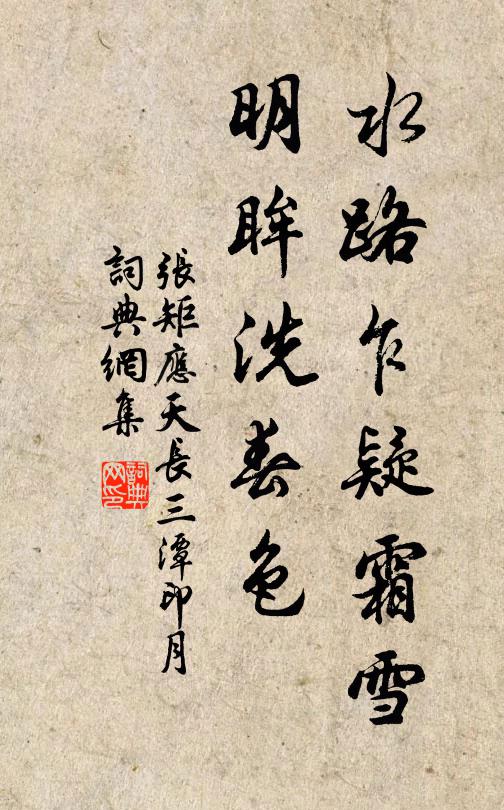 水路乍疑霜雪
明眸洗春色
張矩應天長三潭印月
詞典網集
詞典網印